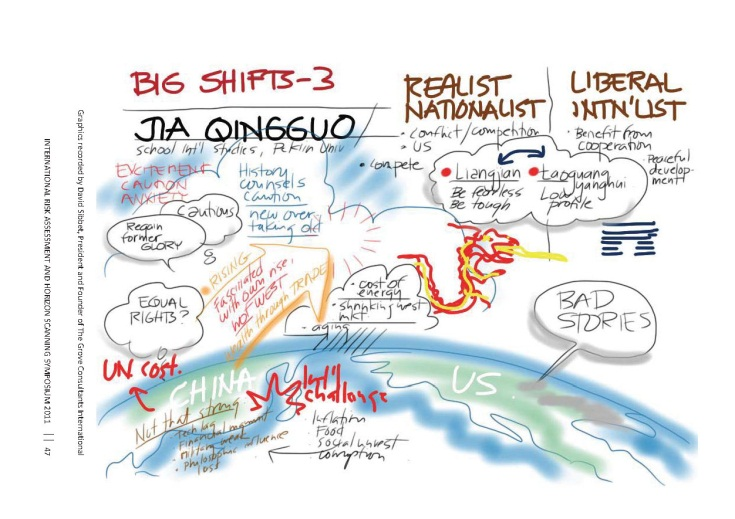 BIG SHIFTS-3
JIA QINGGUO
School Int'l Studies, Pekin Univ
EXCITEMENT
CAUTION
ANXIETY
History
counsels
caution
new over
taking old
Cautious
Regain
former
GLORY
EQUAL
RIGHTS?
• RISING
Fascinated
with own rise,
not WEST
wealth through TRADE
REALIST
NATIONALIST
• Conflict/competition
• US
• Compete
LIBERAL
INTN'LIST
• Benefit from
cooperation
• Peaceful
develop-
ment!
• Liangjian
Be fearless
Be tough
• taoguang
yanghui
Low
profile
• cost of
energy
• shrinking west
mkt.
• aging
BAD
STORIES
UN cost.
CHINA
Int'l
challenge
US
Not that strong
• Tech lag
• Financial
• Military weak
• Philosophic influence
lost
Inflation
Food
Social unrest
corruption
Graphics recorded by David Sibbet, President and Founder of The Grove Consultants International
INTERNATIONAL RISK ASSESSMENT AND HORIZON SCANNING SYMPOSIUM 2011 || 47